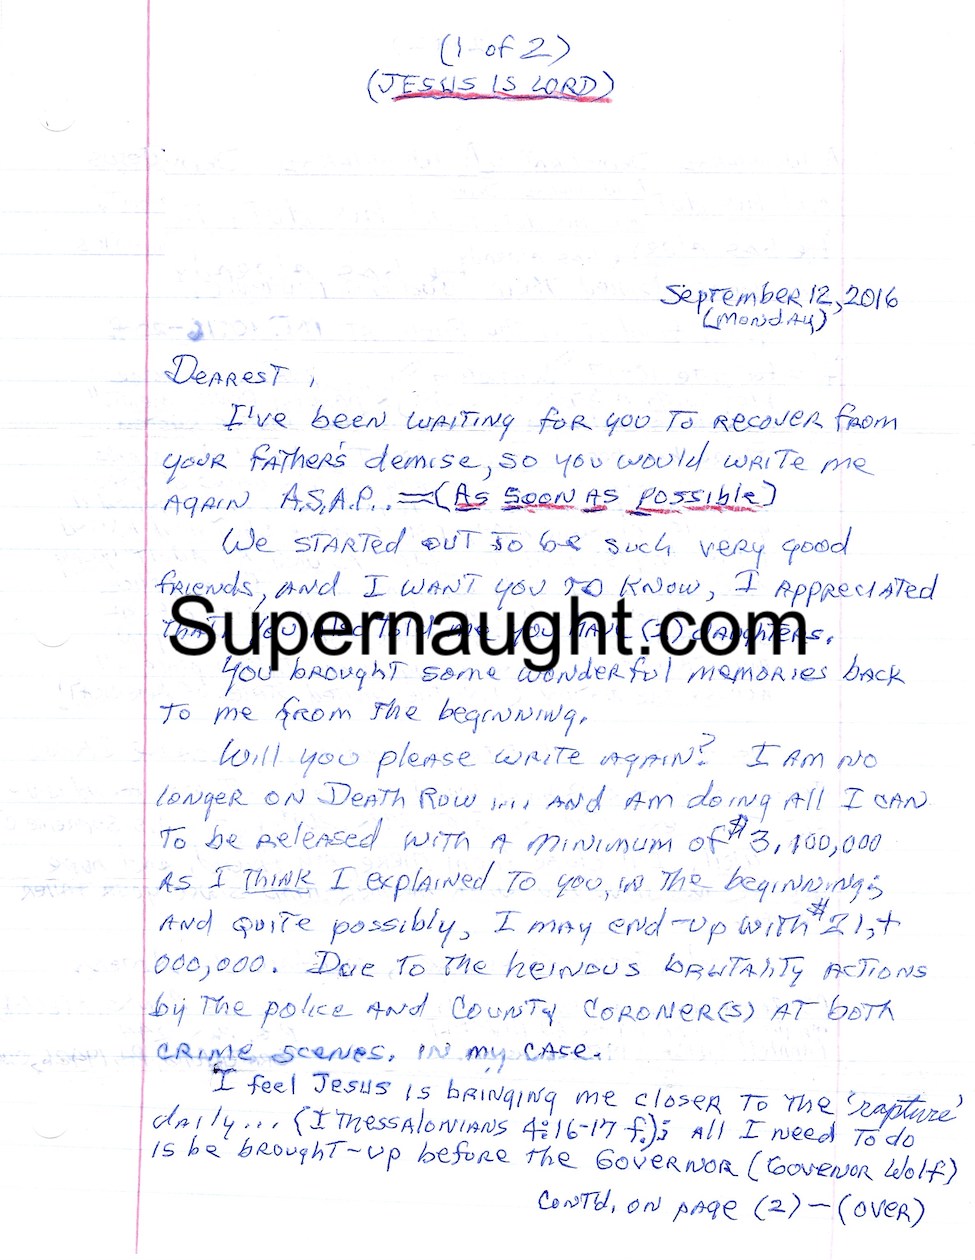 (1 of 2)
(JESUS IS LORD)
September 12, 2016
(Monday)
Dearest ,
I've been waiting for you to recover from
your father's demise, so you would write me
again A.S.A.P.. = (As Soon As Possible)
We started out to be such very good
friends, and I want you to know, I appreciated
that. You also told me you have (2) daughters.
Supernaught.com
You brought some wonderful memories back
to me from the beginning.
Will you please write again? I am no
longer on Death Row .... and am doing all I can
to be released with a minimum of $3,100,000
as I think I explained to you, in the beginning;
and quite possibly, I may end-up with $21,+
000,000. Due to the heinous brutality actions
by the police and County Coroner(s) at both
crime scenes. in my case.
I feel Jesus is bringing me closer to the 'rapture'
daily... (I Thessalonians 4:16-17 f.); all I need to do
is be brought-up before the Governor (Govenor Wolf)
Contd. on page (2) - (over)